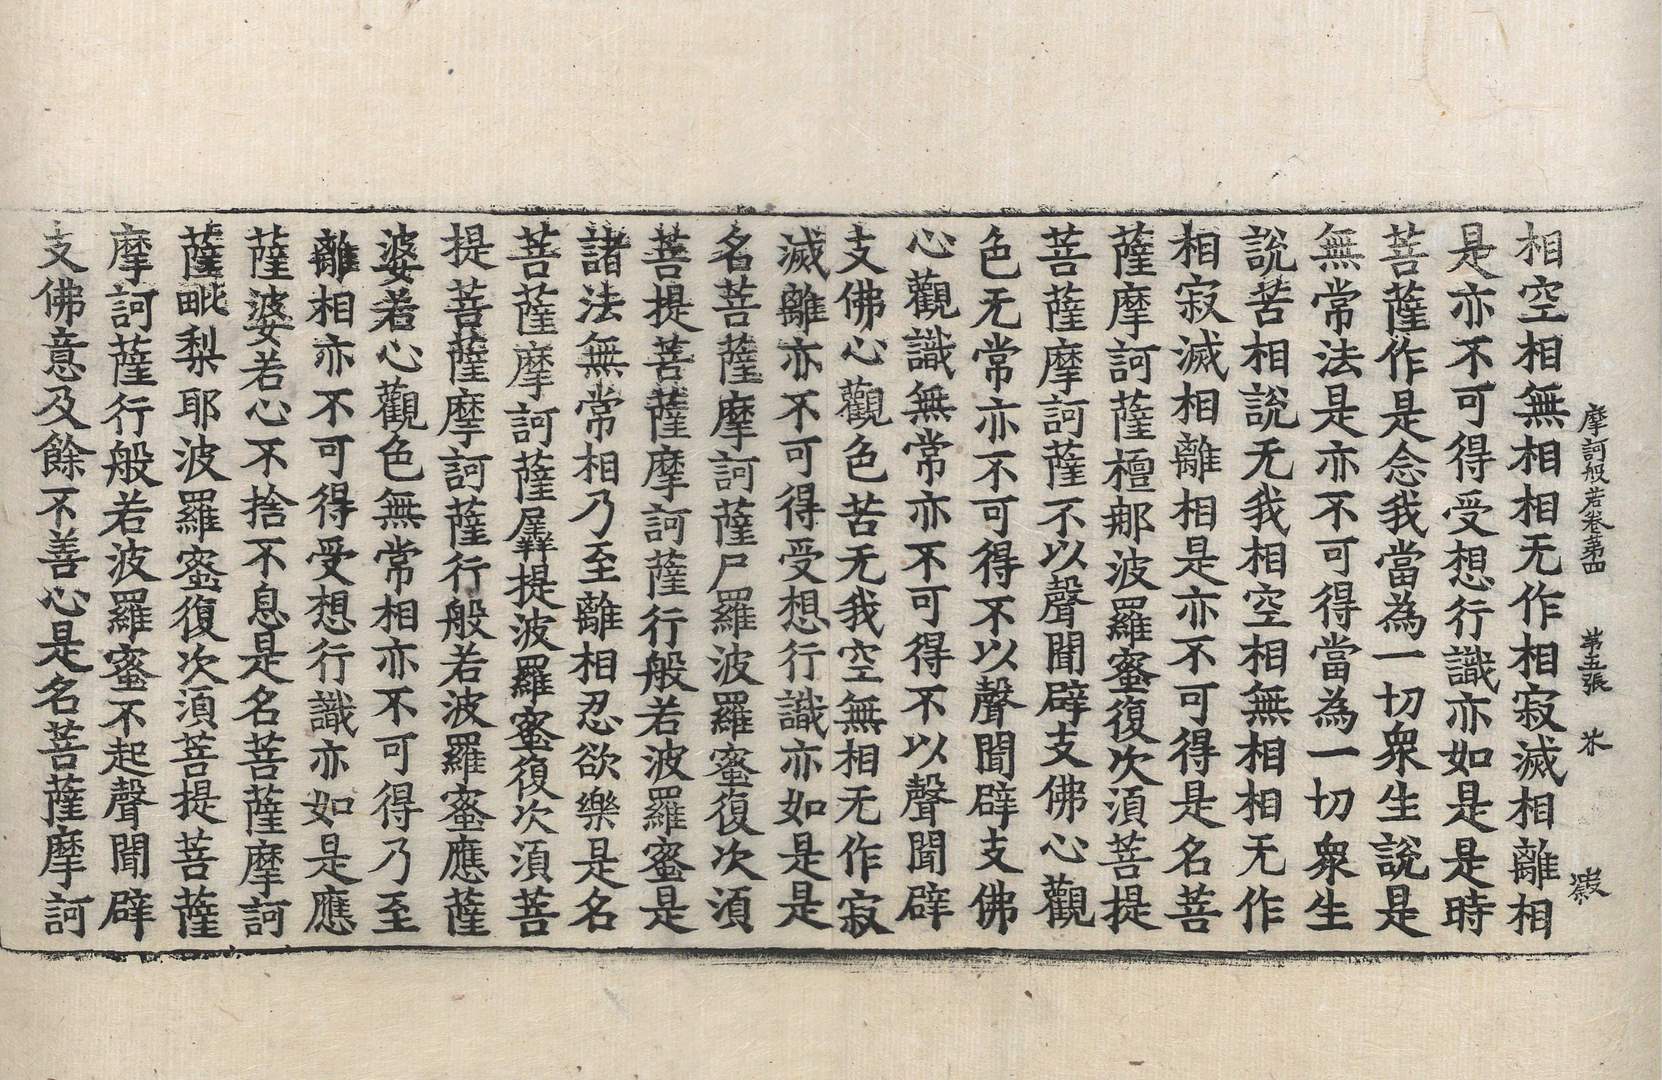 摩訶般若卷第四 第五張 芥
相空相無相相无作相寂滅相離相
是亦不可得受想行識亦如是是時
菩薩作是念我當為一切衆生說是
無常法是亦不可得當為一切衆生
說苦相說无我相空相無相相无作
相寂滅相離相是亦不可得是名菩
薩摩訶薩檀那波羅蜜復次須菩提
菩薩摩訶薩不以聲聞辟支佛心觀
色无常亦不可得不以聲聞辟支佛
心觀識無常亦不可得不以聲聞辟
支佛心觀色苦无我空無相无作寂
滅離亦不可得受想行識亦如是是
名菩薩摩訶薩尸羅波羅蜜復次須
菩提菩薩摩訶薩行般若波羅蜜是
諸法無常相乃至離相忍欲樂是名
菩薩摩訶薩羼提波羅蜜復次須菩
提菩薩摩訶薩行般若波羅蜜應薩
婆若心觀色無常相亦不可得乃至
離相亦不可得受想行識亦如是應
薩婆若心不捨不息是名菩薩摩訶
薩毗梨耶波羅蜜復次須菩提菩薩
摩訶薩行般若波羅蜜不起聲聞辟
支佛意及餘不善心是名菩薩摩訶